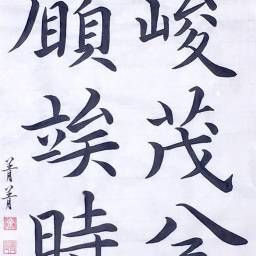 峻茂兮
願竢時
菁菁